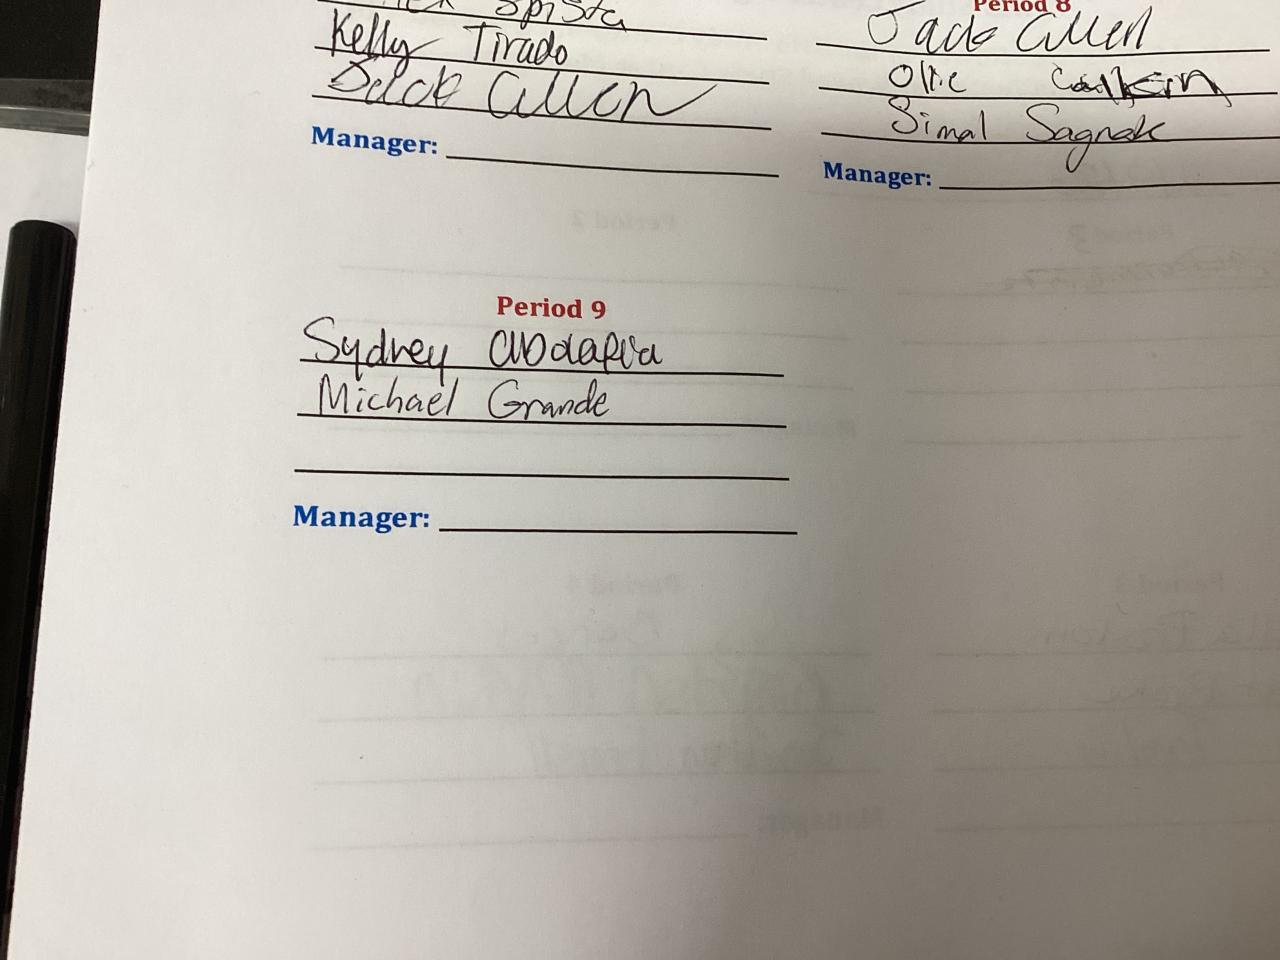 Spista
Kelly Tirado
Jack Cullen
Manager:
Period 8
Jack Cullen
Ollie
Simal Sagnak
Manager:
Period 9
Sydney
Michael Grande
Manager: